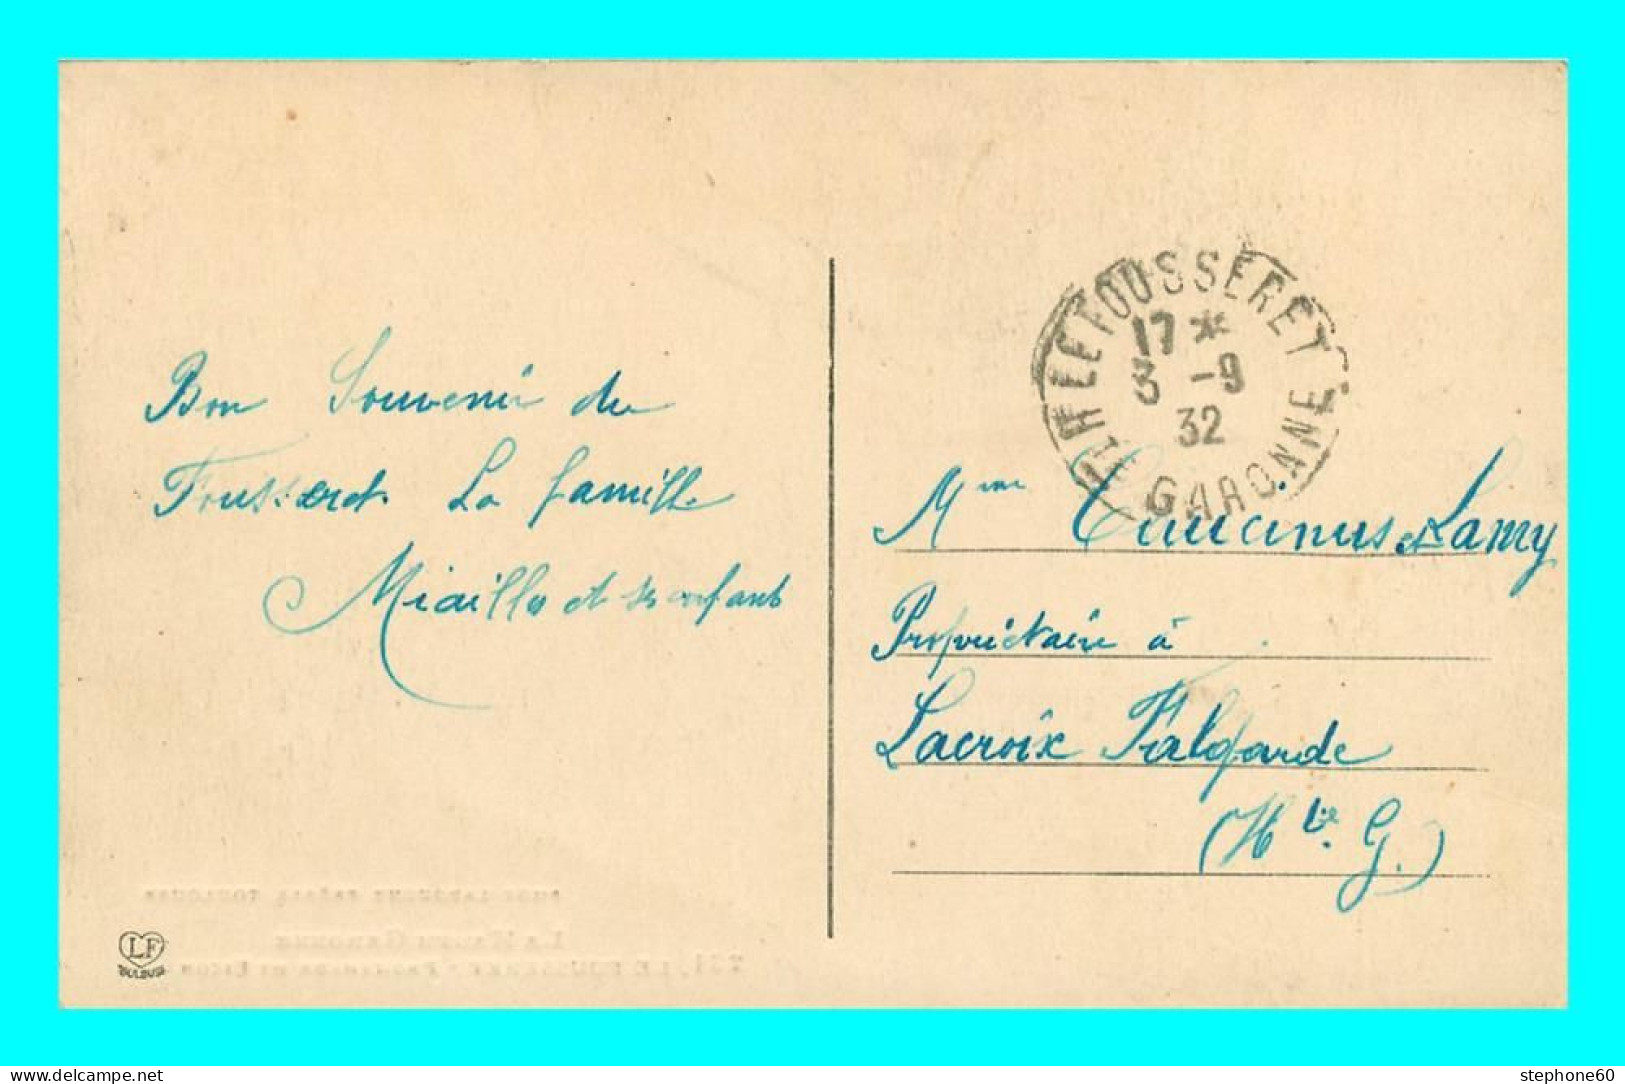 Bon Souvenir du
Fousseret. La famille
Miailhe et ses enfants
LE FOUSSERET
17 *
3 -9
32
HTE GARONNE
Mme Caucinus et Lamy
Propriétaire à
Lacroix Falgarde
(Hte. G.)
LF
TOULOUSE
www.delcampe.net
stephone60